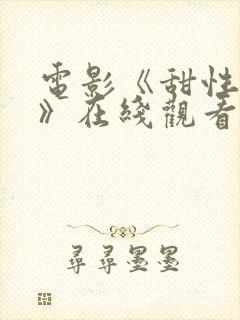 電影《甜性
》在綫觀看
尋尋墨墨